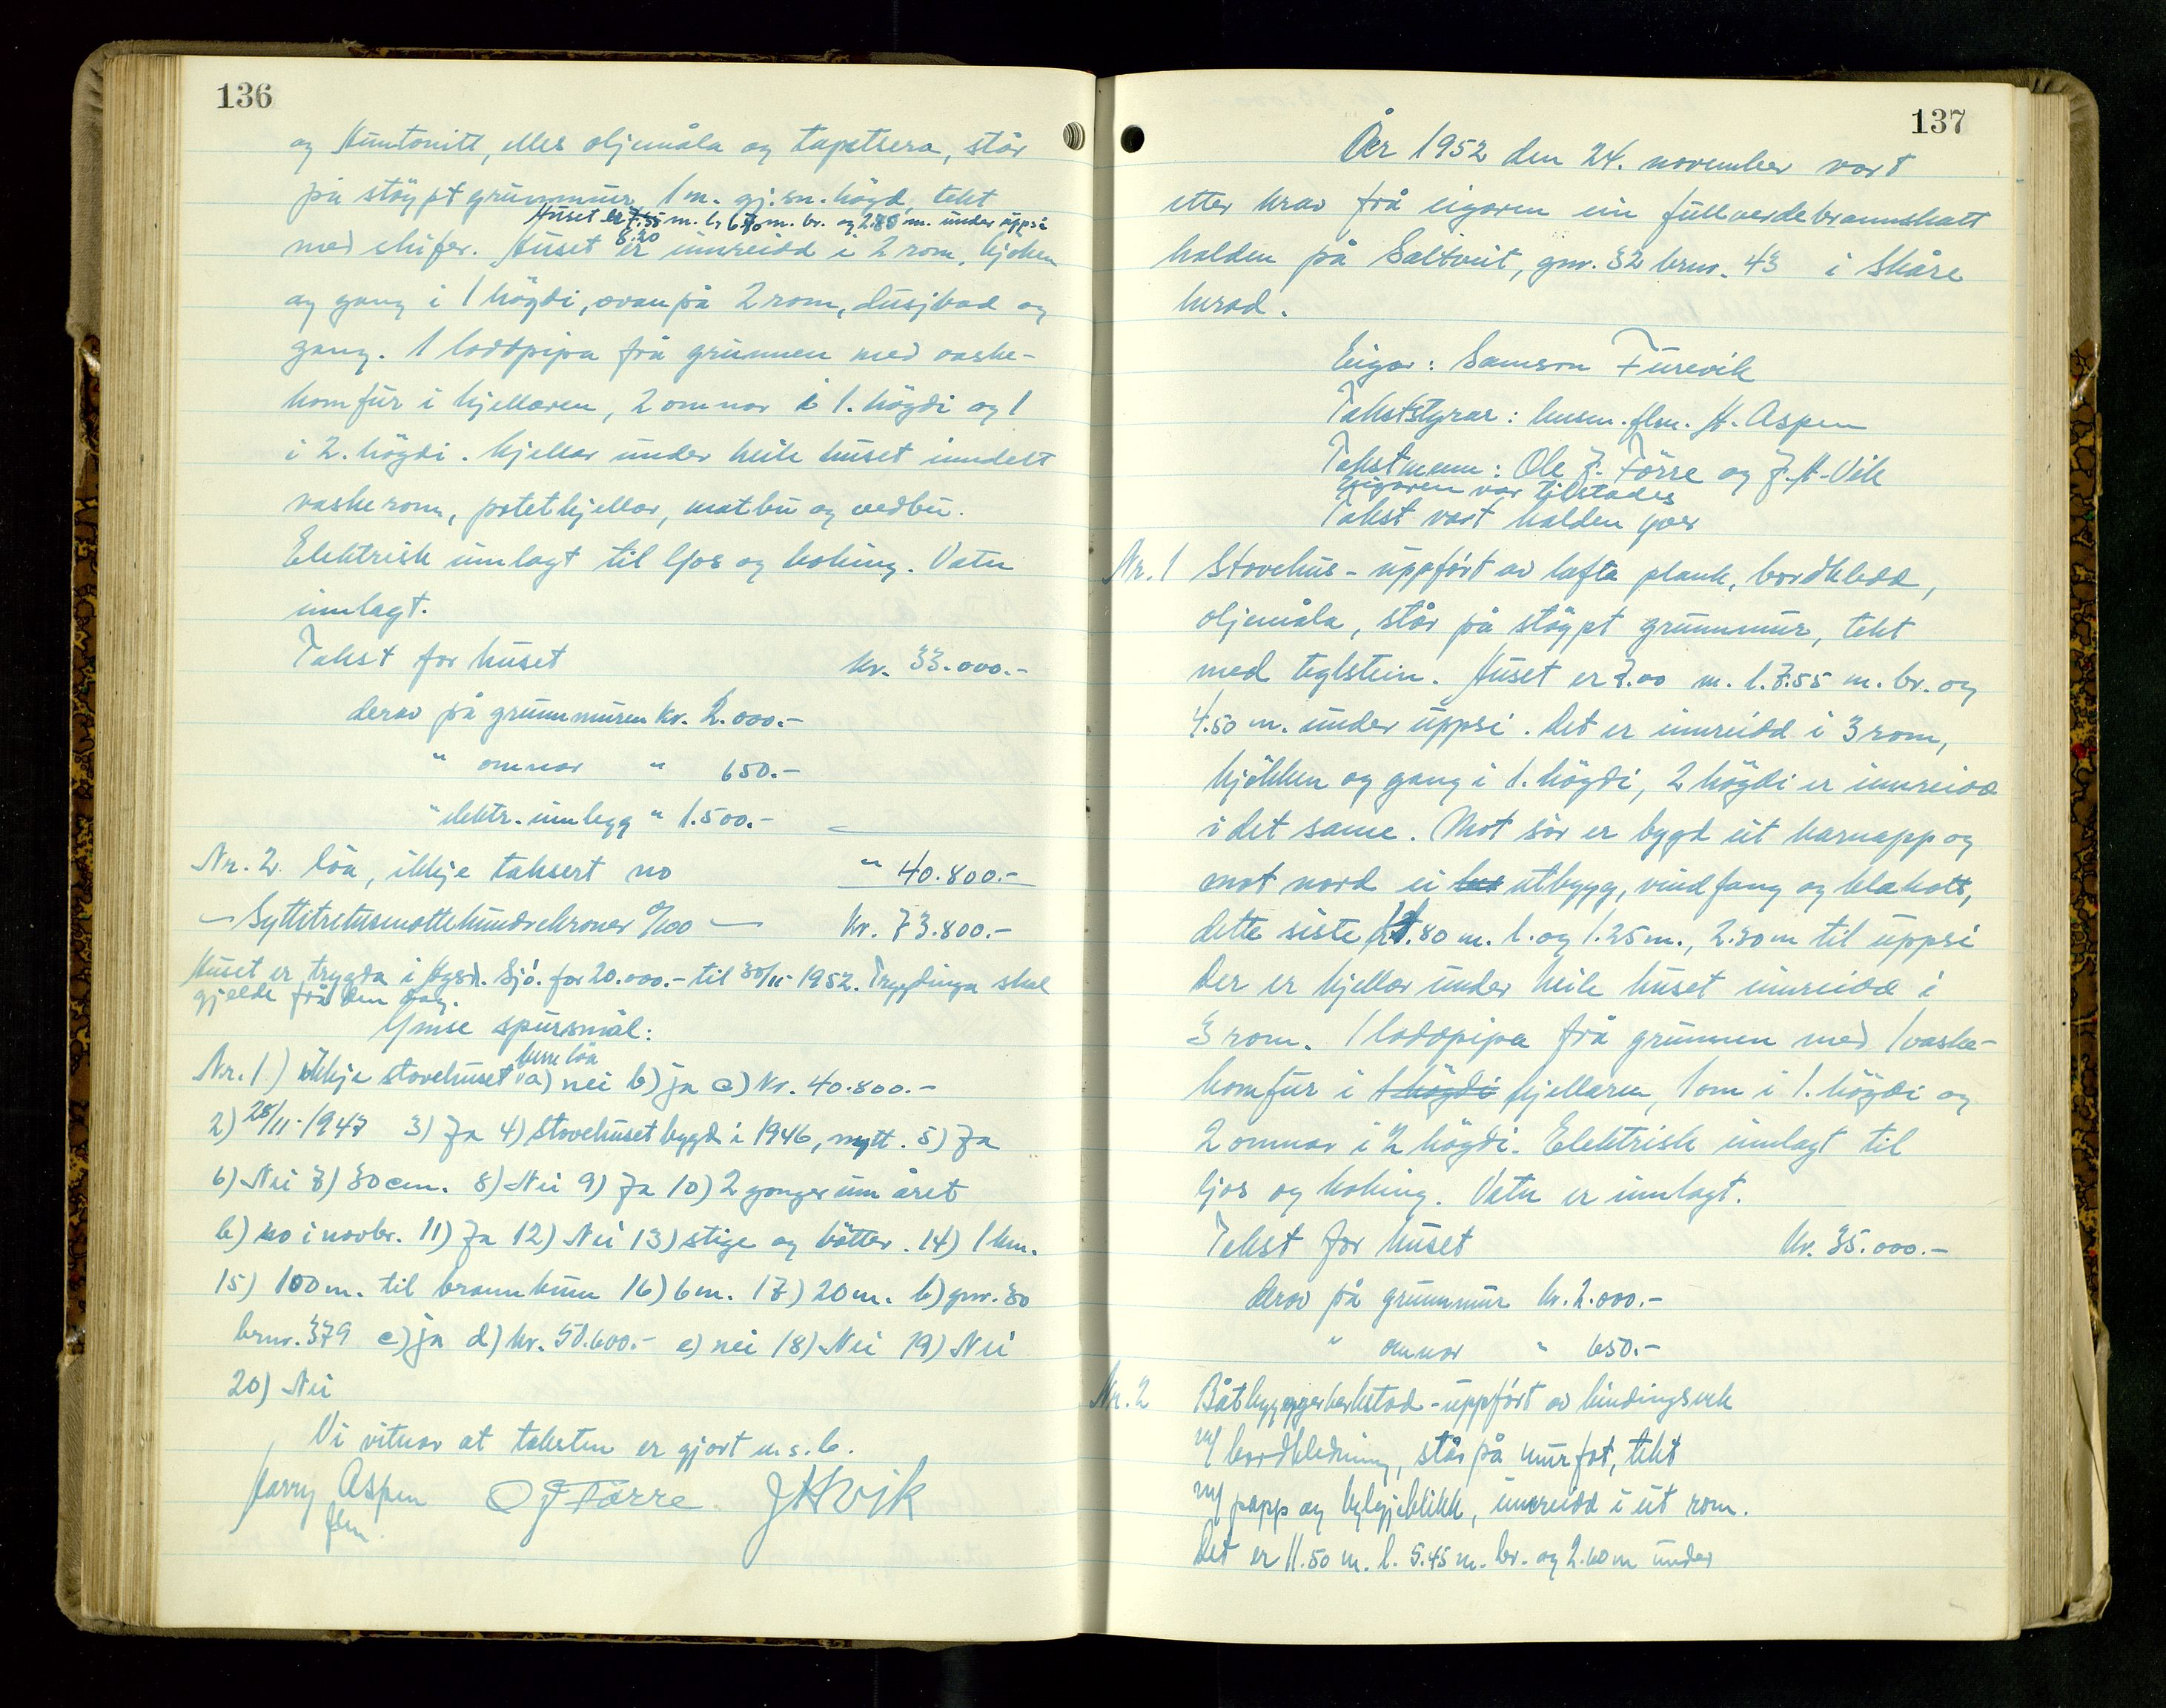 136
og Huntonitt, elles oljemåla og tapetsera, står
på støypt grunnmur 1 m. gj.sn. høgd, tekt
Huset er 7.55 m. l. 6.70 m. br. og 2.80 m. under uppsi
8.20
med skifer. Huset er innreidd i 2 rom, kjøken
og gang i 1 høgdi, ovanpå 2 rom, dusjbad og
gang. 1 loddpipa frå grunnen med vaske-
komfur i kjellaren, 2 omnar i 1. høgdi og 1
i 2. høgdi. Kjellar under heile huset inndelt
vaskerom, potetkjellar, matbu og vedbu.
Elektrisk innlagt til ljos og koking. Vatn
innlagt.
Takst for huset kr. 33.000.-
derav på grunnmuren kr. 2.000.-
" omnar " 650.-
" elektr. innlegg " 1.500.-
Nr. 2. Löa, ikkje taksert no " 40.800.-
- Syttitretusenottehundrekroner 0/100 - Kr. 73.800.-
Huset er trygda i Hgsd. Sjó. for 20.000.- til 30/11-1952. Trygdinga skal
gjelde frå den dag.
Ymse spursmål:
berre löa
Nr. 1) ikkje stovehuset a) nei b) ja c) kr. 40.800.-
2) 28/11-1947 3) Ja 4) Stovehuset bygd i 1946, nytt. 5) Ja
6) Nei 7) 30 cm. 8) Nei 9) Ja 10) 2 gonger um året
b) no i novbr. 11) Ja 12) Nei 13) stige og bötter. 14) 1 km.
15) 100 m. til brannkum 16) 6 m. 17) 20 m. b) gnr. 30
brnr. 379 c) ja d) kr. 50.600.- e) nei 18) Nei 19) Nei
20) Nei
Vi vitnar at taksten er gjort u.s.b.
Harry Aspen O J Førre J H Vik
flm.
137
År 1952 den 24. november vart
etter krav frå eigaren ein fullverdebrannskatt
halden på Saltveit, gnr. 32 brnr. 43 i Skåre
herad.
Eigar: Samson Furevik
Takststyrar: lensm.flm. H. Aspen
Takstmenn: Ole J. Förre og J. H. Vik
Eigaren var tilstades
Takst vart halden yver
Nr. 1 Stovehus - uppfört av lafta plank, bordkledd,
oljemåla, står på støypt grunnmur, tekt
med teglstein. Huset er 7.00 m. l. 7.55 m. br. og
4.50 m. under uppsi. Det er innreidd i 3 rom,
kjökken og gang i 1. högdi, 2 högdi er innreidd
i det same. Mot sör er bygd ut karnapp og
mot nord ei utbygg, vindfang og klakott,
dette siste 1.80 m. l. og 1.25 m., 2.30 m til uppsi
Der er kjellar under heile huset innreidd i
3 rom. 1 loddpipa frå grunnen med 1 vaske-
komfur i 1 högdi kjellaren, 1 om i 1. högdi og
2 omnar i 2 högdi. Elektrisk innlagt til
ljos og koking. Vatn er innlagt.
Takst for huset kr. 35.000.-
derav på grunnmur kr. 2.000.-
" omnar " 650.-
Nr. 2 Båtbyggjerverkstad - uppfört av bindingsverk
m/ bordkledning, står på murfot, tekt
m/ papp og bylgjeblikk, innreidd i eit rom.
Det er 11.50 m. l. 5.45 m. br. og 2.60 m under